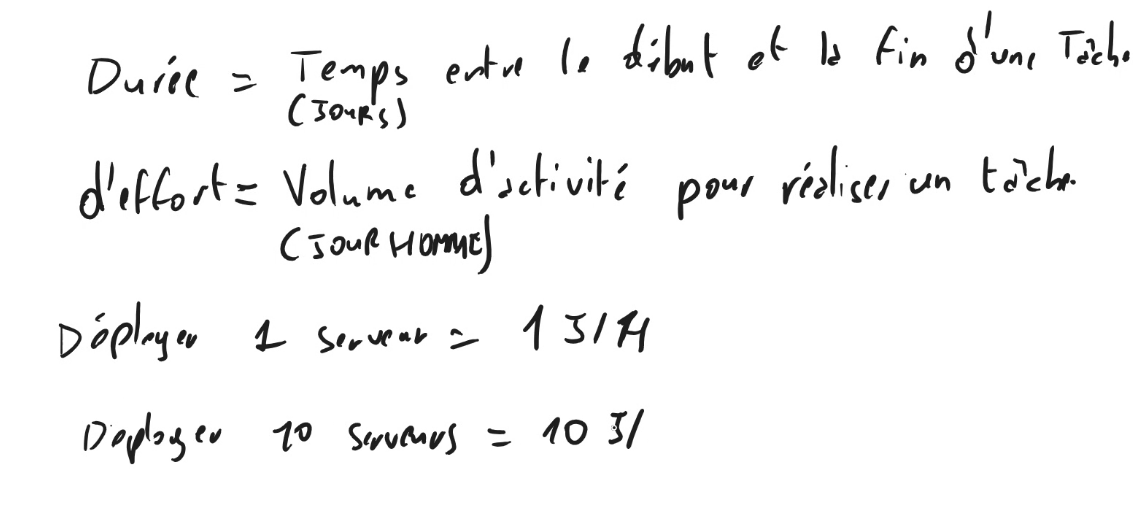 Durée = Temps entre le début et la fin d'une Tâche
(JOURS)
d'effort = Volume d'activité pour réaliser un tâche.
(JOUR HOMME)
Déployer 1 serveur = 1 J/H
Deployer 10 serveurs = 10 J/